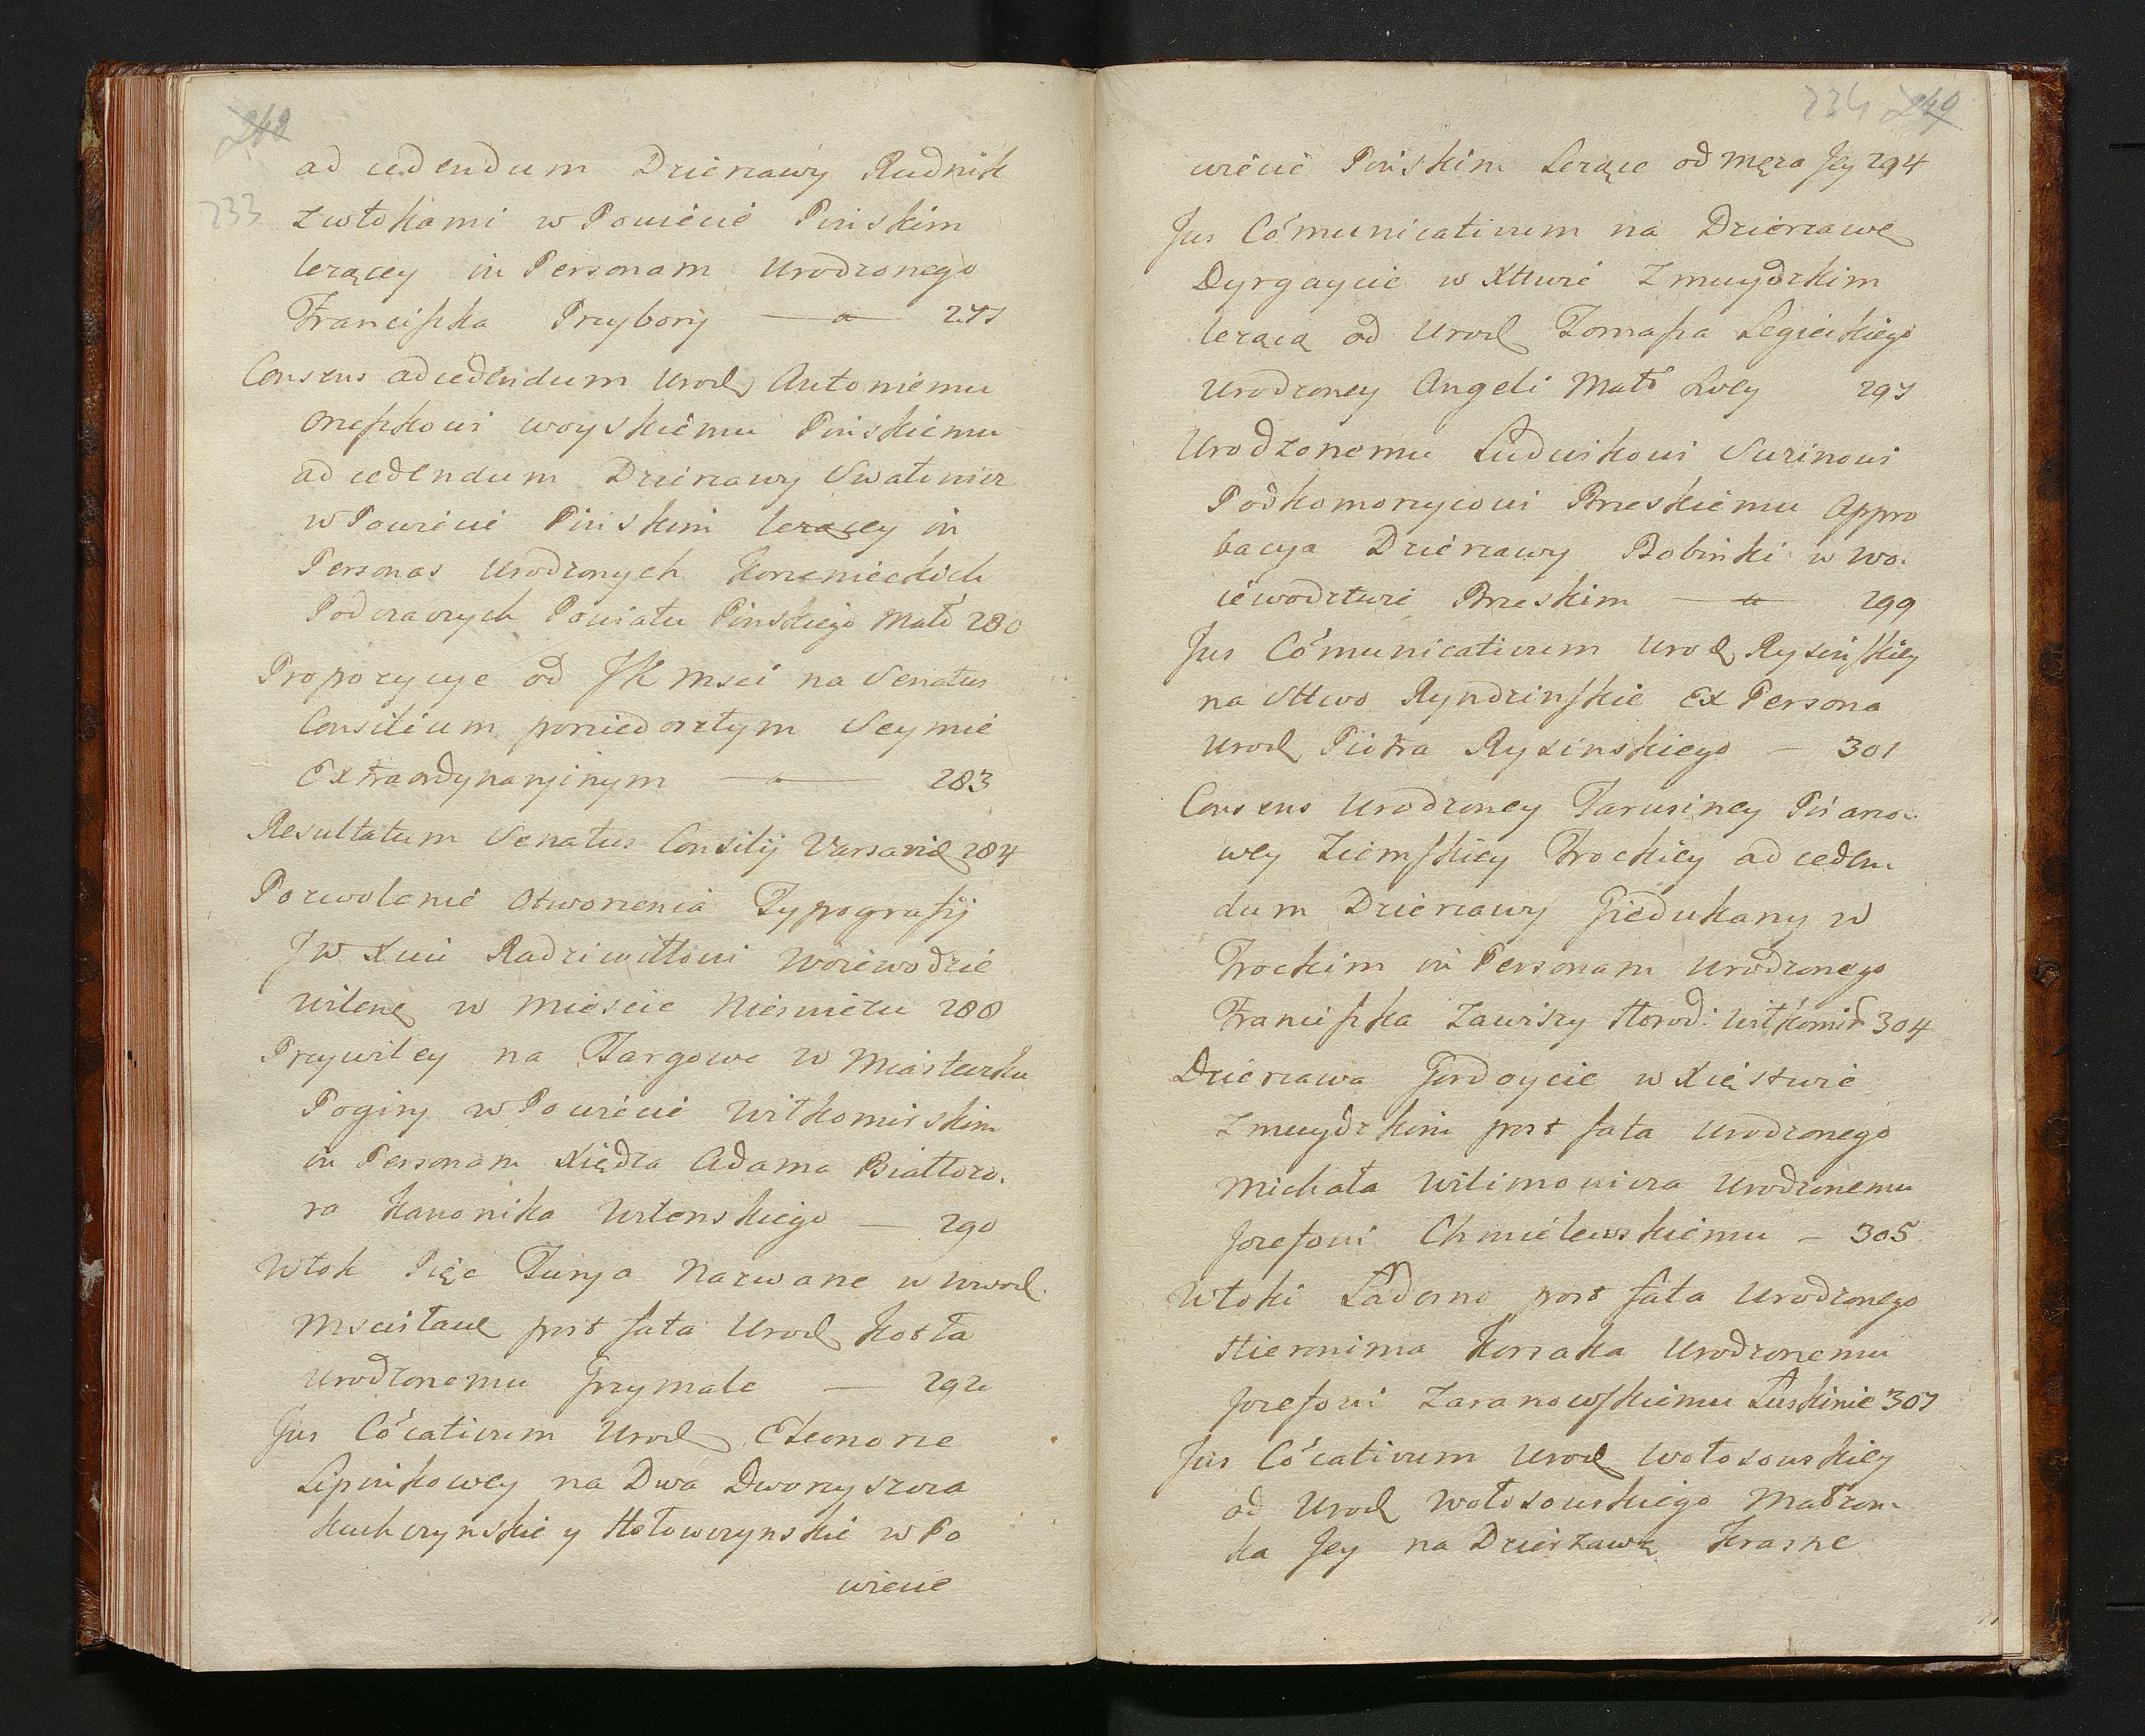 248
233
ad cedendum Dzierzawy Rudnik
z włokami w Powiecie Pinskim
lezącey in Personam Urodzonego
Franciszka Przybory — a — 277
Consens ad cedendum Urod Antoniemu
Oreszkowi woyskiemu Pinskiemu
ad cedendum Dzierzawy Swatewicz
w Powiecie Pinskim lezacey in
Personas Urodzonych Korzenieckich
Podczaszych Powiatu Pinskiego Małż 280
Propozycye od JK Msci na Senatus
Consilium poniedoszłym Seymie
Extraordynaryinym — a — 283
Resultatum Senatus Consilij Varsavie 284
Pozwolenie Otworzenia Typografij
JW Xciu Radziwiłłowi Woiewodzie
Wilene w Miescie Nieswiezu 288
Przywiley na Targowe w Miasteczku
Poginy w Powiecie Wiłkomirskim
in Personam Xiędza Adama Białłozo.
ra Kanonika Wilenskiego — 290
Włok Pięc Turya Nazwane w Wwod.
Mscisławe post fata Urod Kosła
Urodzonemu Grzymale — 292
Jus Cocativum Urod Eleonorze
Lipinkowey na Dwa Dworzyszcza
Kuchczynskie y Hołowczynskie w Po
wiecie
234 249
wiecie Pinskim Lezące od Męza Jey 294
Jus Comunicativum na Dzierzawe
Dyrgaycie w Xttwie Zmuydzkim
lezącą od Urod Tomasza Legieckiego
Urodzoney Angeli Małż Swey 297
Urodzonemu Ludwikowi Surinowi
Podkomorzycowi Brzeskiemu Appro
bacya Dzierzawy Bobinki w Wo.
iewodztwie Brzeskim — a — 299
Jus Comunicativum Urod Ryxinskiey
na Sttwo Ryndzinskie Ex Persona
Urod Piotra Ryxinskiego — 301
Consens Urodzoney Tarusiney Pisarzo.
wey Ziemskiey Trockiey ad ceden
dum Dzierzawy Giedukany w
Trockim in Personam Urodzonego
Franciszka Zawiszy Horod: Wiłkomir 304
Dzierzawa Gordoycie w Xięstwie
Zmuydzkim post fata Urodzonego
Michała Wilimowicza Urodzonemu
Jozefowi Chmielewskiemu — 305
Włoki Ładosno post fata Urodzonego
Hieronima Korsaka Urodzonemu
Jozefowi Zaranowskiemu Łuskinie 307
Jus Cocativum Urod Wołosowskiey
od Urod Wołosowskiego Małzon
ka Jey na Dzierzawę Kraszc